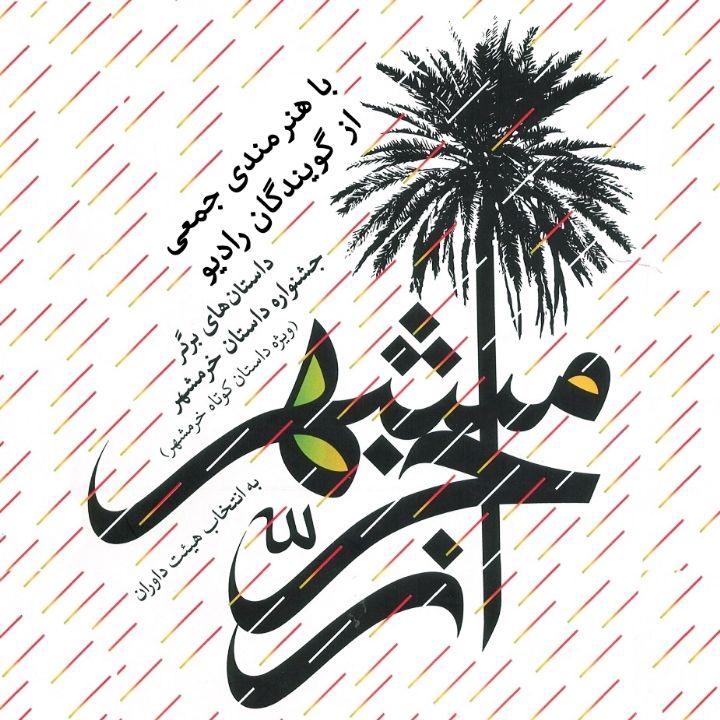 با هنرمندی جمعی
از گویندگان رادیو
داستان‌های
جشنواره داستان خرمشهر
(ویژه داستان کوتاه خرمشهر)
به انتخاب هیئت داوران
از خرمشهر